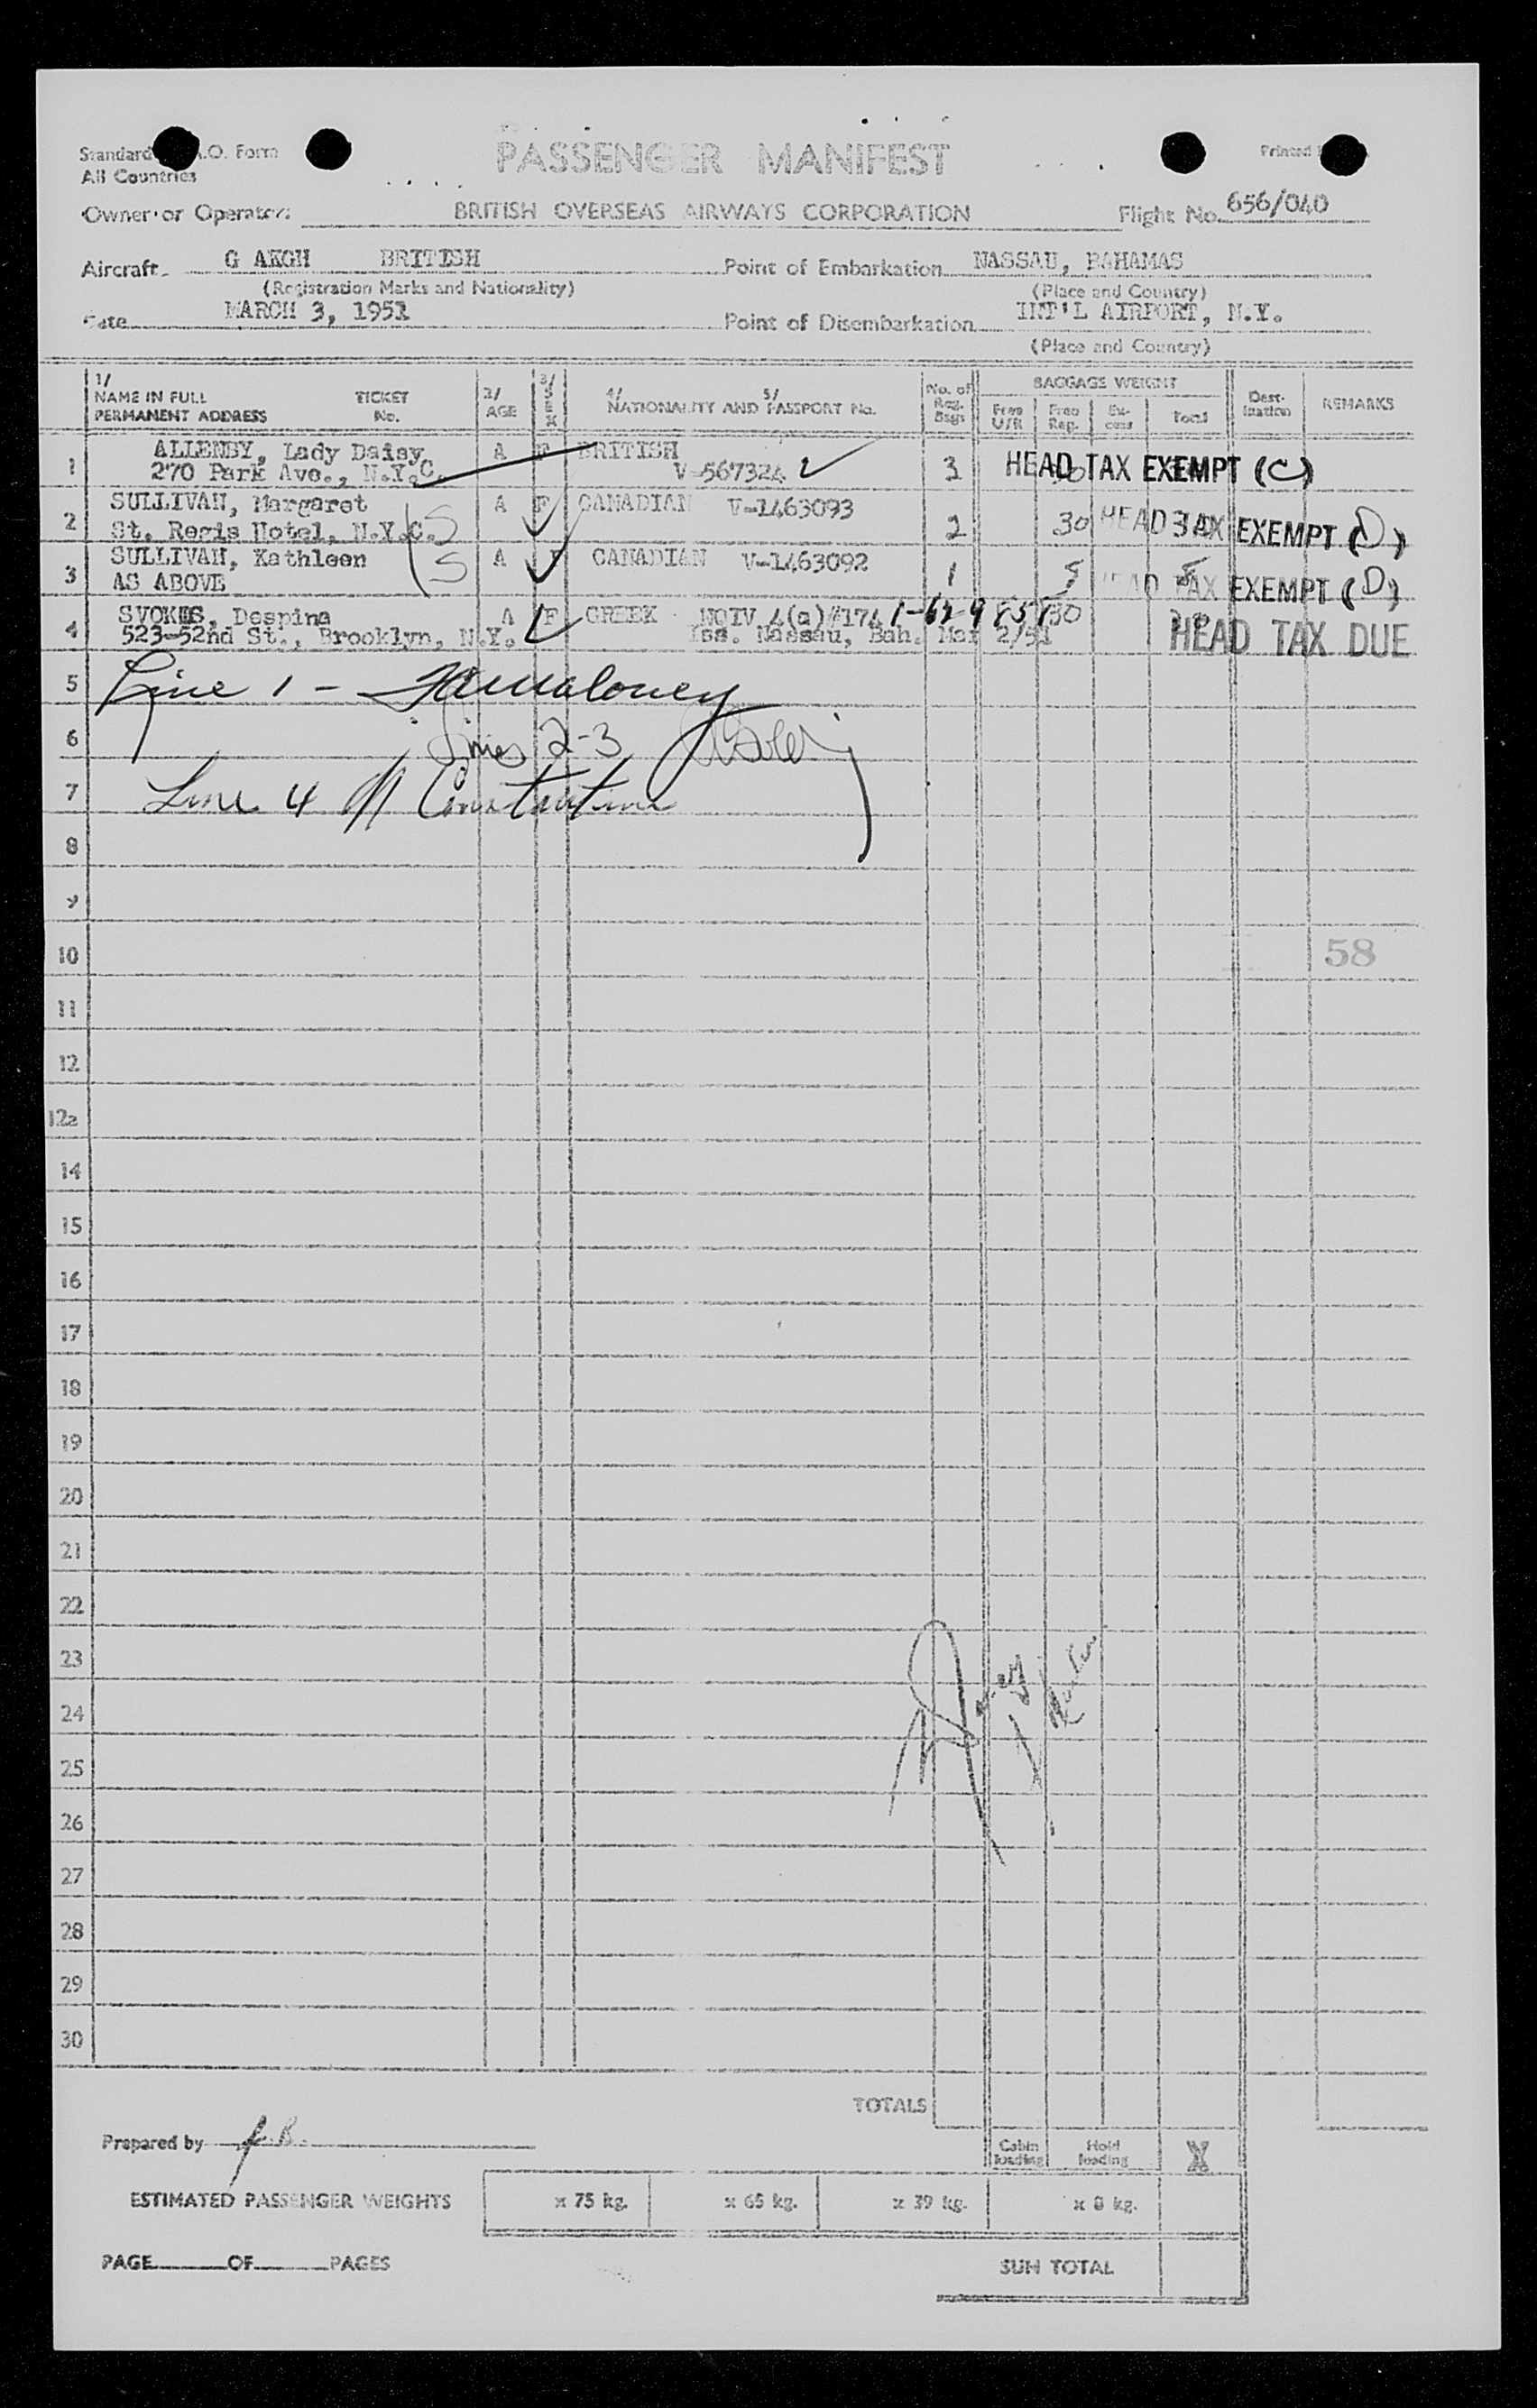 Standard .O. Form
All Countries
PASSENGER MANIFEST
Printed
Owner or Operator: BRITISH OVERSEAS AIRWAYS CORPORATION Flight No. 656/040
Aircraft G AKGH BRITISH Point of Embarkation NASSAU, BAHAMAS
(Registration Marks and Nationality) (Place and Country)
Date MARCH 3, 1951 Point of Disembarkation INT'L AIRPORT, N.Y.
(Place and Country)
1/ NAME IN FULL PERMANENT ADDRESS TICKET No. 2/ AGE 3/ SEX 4/ 5/ NATIONALITY AND PASSPORT No. No. of Reg. Bags BAGGAGE WEIGHT Free U/R Free Reg. Ex-cess Total Dest-ination REMARKS
1 ALLENBY, Lady Daisy A F BRITISH
270 Park Ave., N.Y.C. V-567324 3 HEAD TAX EXEMPT (C)
2 SULLIVAN, Margaret S A F CANADIAN V-1463093
St. Regis Hotel, N.Y.C. 2 30 HEAD TAX EXEMPT (D)
3 SULLIVAN, Kathleen S A CANADIAN V-1463092
AS ABOVE 1 5 5 HEAD TAX EXEMPT (D)
4 SVOKOS, Despina A F GREEK NOIV 4(a)#174 30
523-52nd St., Brooklyn, N.Y. Iss. Nassau, Bah. Mar 2/51 HEAD TAX DUE
5 Line 1 -
6 Lines 2-3
7 Line 4
8
9
10 58
11
12
12a
14
15
16
17
18
19
20
21
22
23
24
25
26
27
28
29
30
TOTALS
Prepared by
Cabin loading Hold loading
ESTIMATED PASSENGER WEIGHTS x 75 kg. x 65 kg. x 39 kg. x 8 kg.
PAGE OF PAGES SUM TOTAL